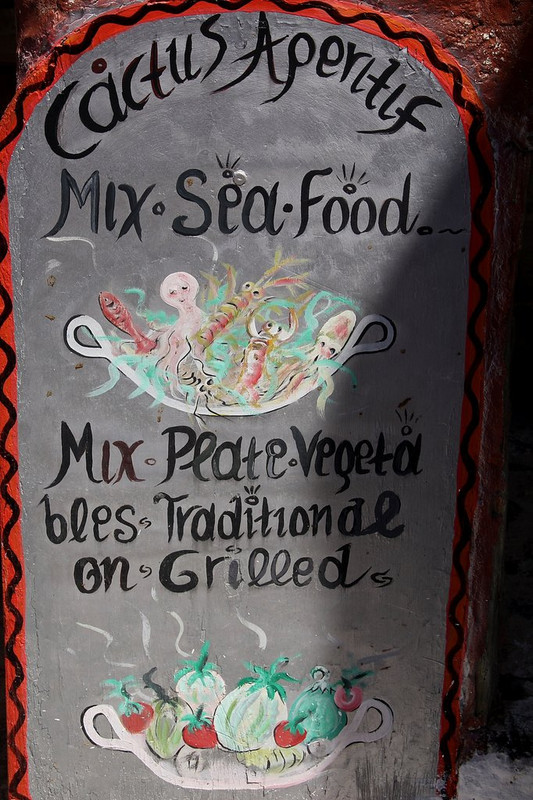 Cactus Aperitif
Mix · Sea · Food..~
Mix · Plate · Vegeta
bles · Traditional
on · Grilled